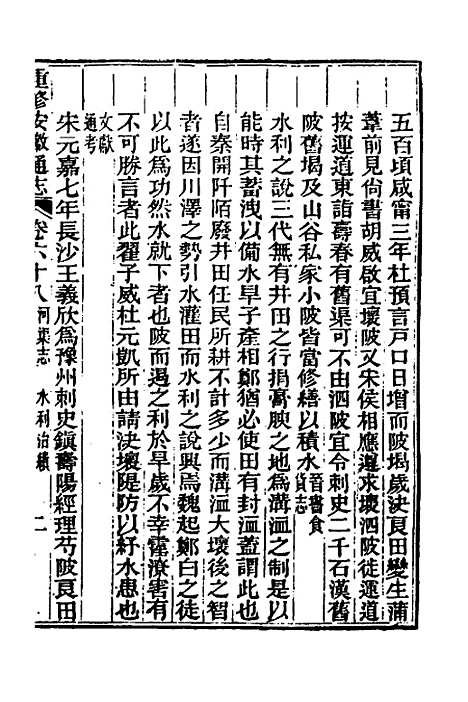 五百頃咸甯三年杜預言戸口日增而陂堨歲決艮田變生蒲
葦前見尙書胡威啟宜壞陂又宋侯相應遵求壞泗陂徙運道
按運道東詣壽春有舊渠可不由泗陂宜令刺史二千石漢舊
陂舊堨及山谷私家小陂皆當修繕以積水晉書食貨志
水利之說三代無有井田之行捐膏腴之地爲溝洫之制是以
能時其蓄洩以備水旱子產相鄭猶必使田有封洫蓋謂此也
自秦開阡陌廢井田任民所耕不計多少而溝洫大壞後之智
者遂因川澤之勢引水灌田而水利之說興焉魏起鄭白之徒
以此爲功然水就下者也陂而遏之利於旱歲不幸霪潦害有
不可勝言者此翟子威杜元凱所由請決壞隄防以紓水患也
文獻通考
宋元嘉七年長沙王義欣爲豫州刺史鎮壽陽經理芍陂艮田
重修安徽通志 卷六十八 河渠志 水利治績 二